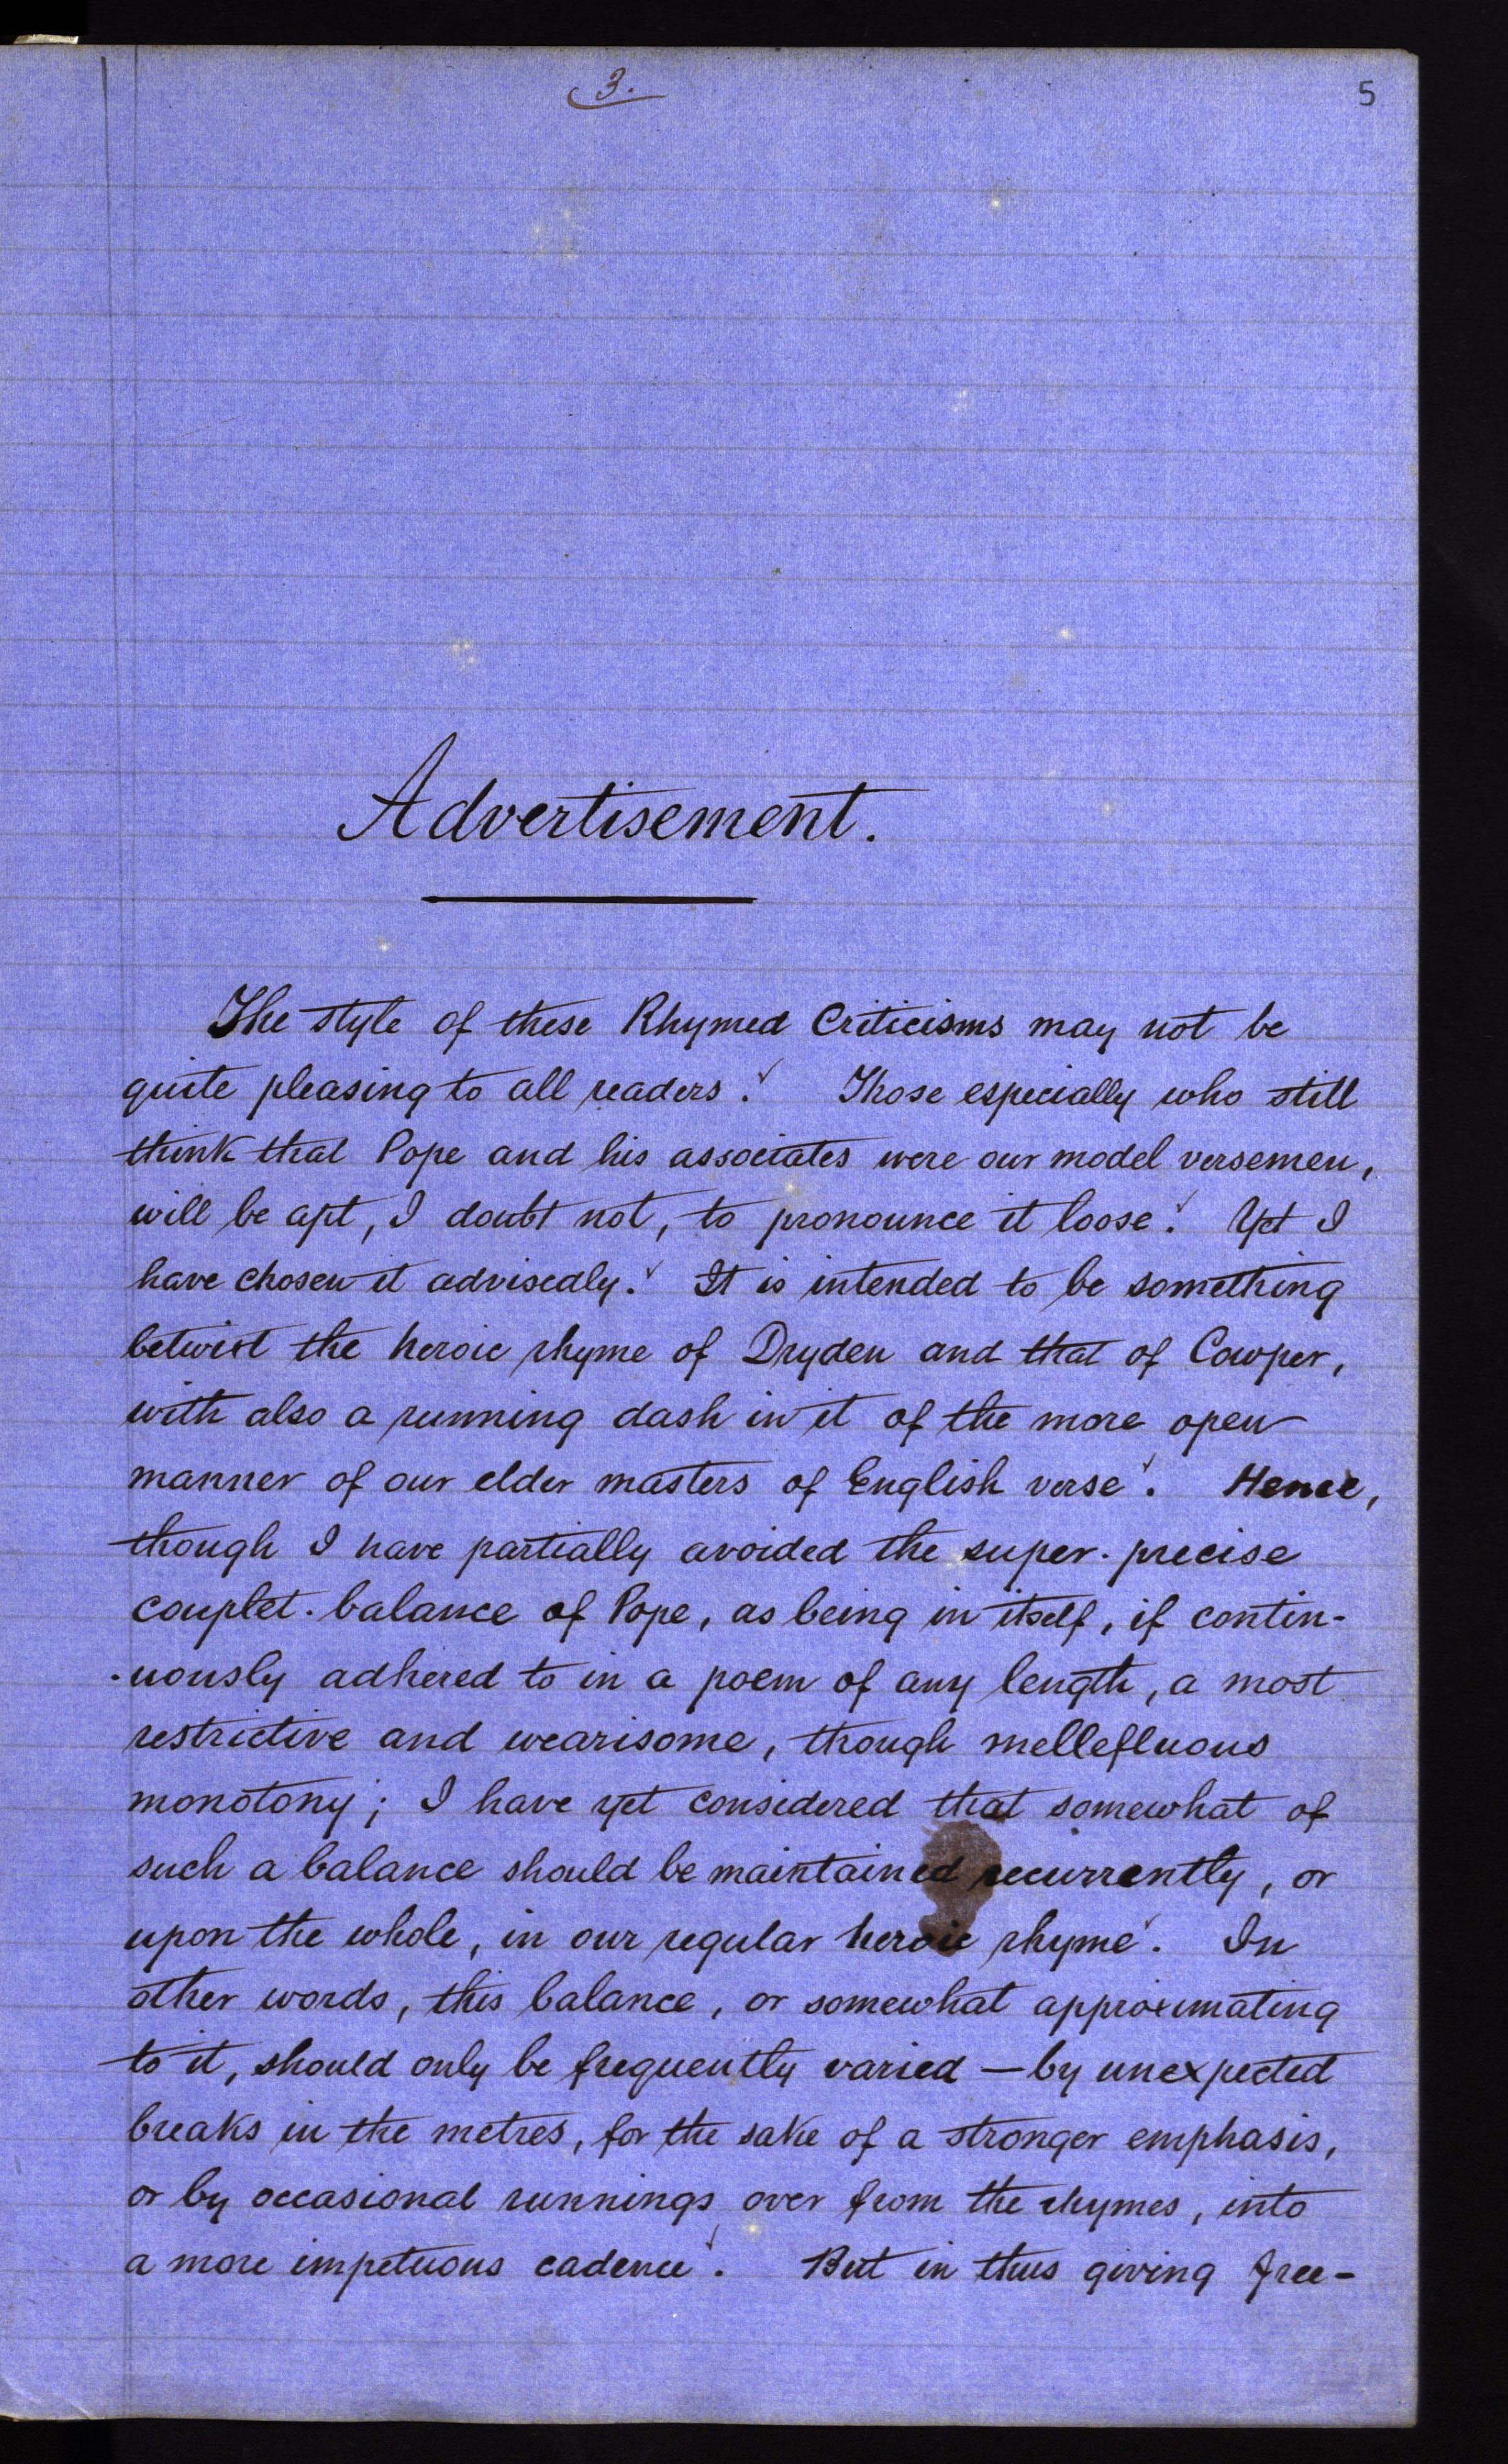 3.
5
Advertisement.
The style of these Rhymed Criticisms may not be
quite pleasing to all readers. Those especially who still
think that Pope and his associates were our model versemen,
will be apt, I doubt not, to pronounce it loose. Yet I
have chosen it advisedly. It is intended to be something
betwixt the heroic rhyme of Dryden and that of Cowper,
with also a running dash in it of the more open
manner of our elder masters of English verse. Hence,
though I have partially avoided the super-precise
couplet-balance of Pope, as being in itself, if contin-
-uously adhered to in a poem of any length, a most
restrictive and wearisome, though mellefluous
monotony; I have yet considered that somewhat of
such a balance should be maintained recurrently, or
upon the whole, in our regular heroic rhyme. In
other words, this balance, or somewhat approximating
to it, should only be frequently varied — by unexpected
breaks in the metres, for the sake of a stronger emphasis,
or by occasional runnings over from the rhymes, into
a more impetuous cadence. But in thus giving free-